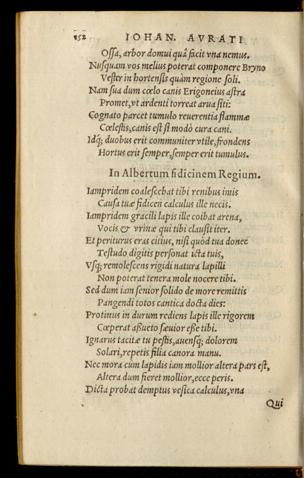 152 IOHAN. AVRATI
Ossa, arbor domui quâ facit vna nemus.
Nusquam vos melius poterat componere Bryno
Vester in hortensis quàm regione soli.
Nam sua dum cœlo canis Erigoneius astra
Promet, vt ardenti torreat arua siti:
Cognato parcet tumulo reuerentia flammæ
Cœlestis, canis est si modò cura cani.
Idq; duobus erit communiter vtile, frondens
Hortus erit semper, semper erit tumulus.
In Albertum fidicinem Regium.
Iampridem coalescebat tibi renibus imis
Causa tuæ fidicen calculus ille necis.
Iampridem gracili lapis ille coibat arena,
Vocis & vrinæ qui tibi clausit iter.
Et periturus eras citius, nisi quòd tua donec
Testudo digitis personat icta tuis,
Vsq; remolescens rigidi natura lapilli
Non poterat tenera mole nocere tibi.
Sed dum iam senior solido de more remittis
Pangendi totos cantica docta dies:
Protinus in durum rediens lapis ille rigorem
Cœperat assueto sæuior esse tibi.
Ignarus tacitæ tu pestis, auensq; dolorem
Solari, repetis filia canora manu.
Nec mora cum lapidis iam mollior altera pars est,
Altera dum fieret mollior, ecce peris.
Dicta probat demptus vesica calculus, vna
Qui